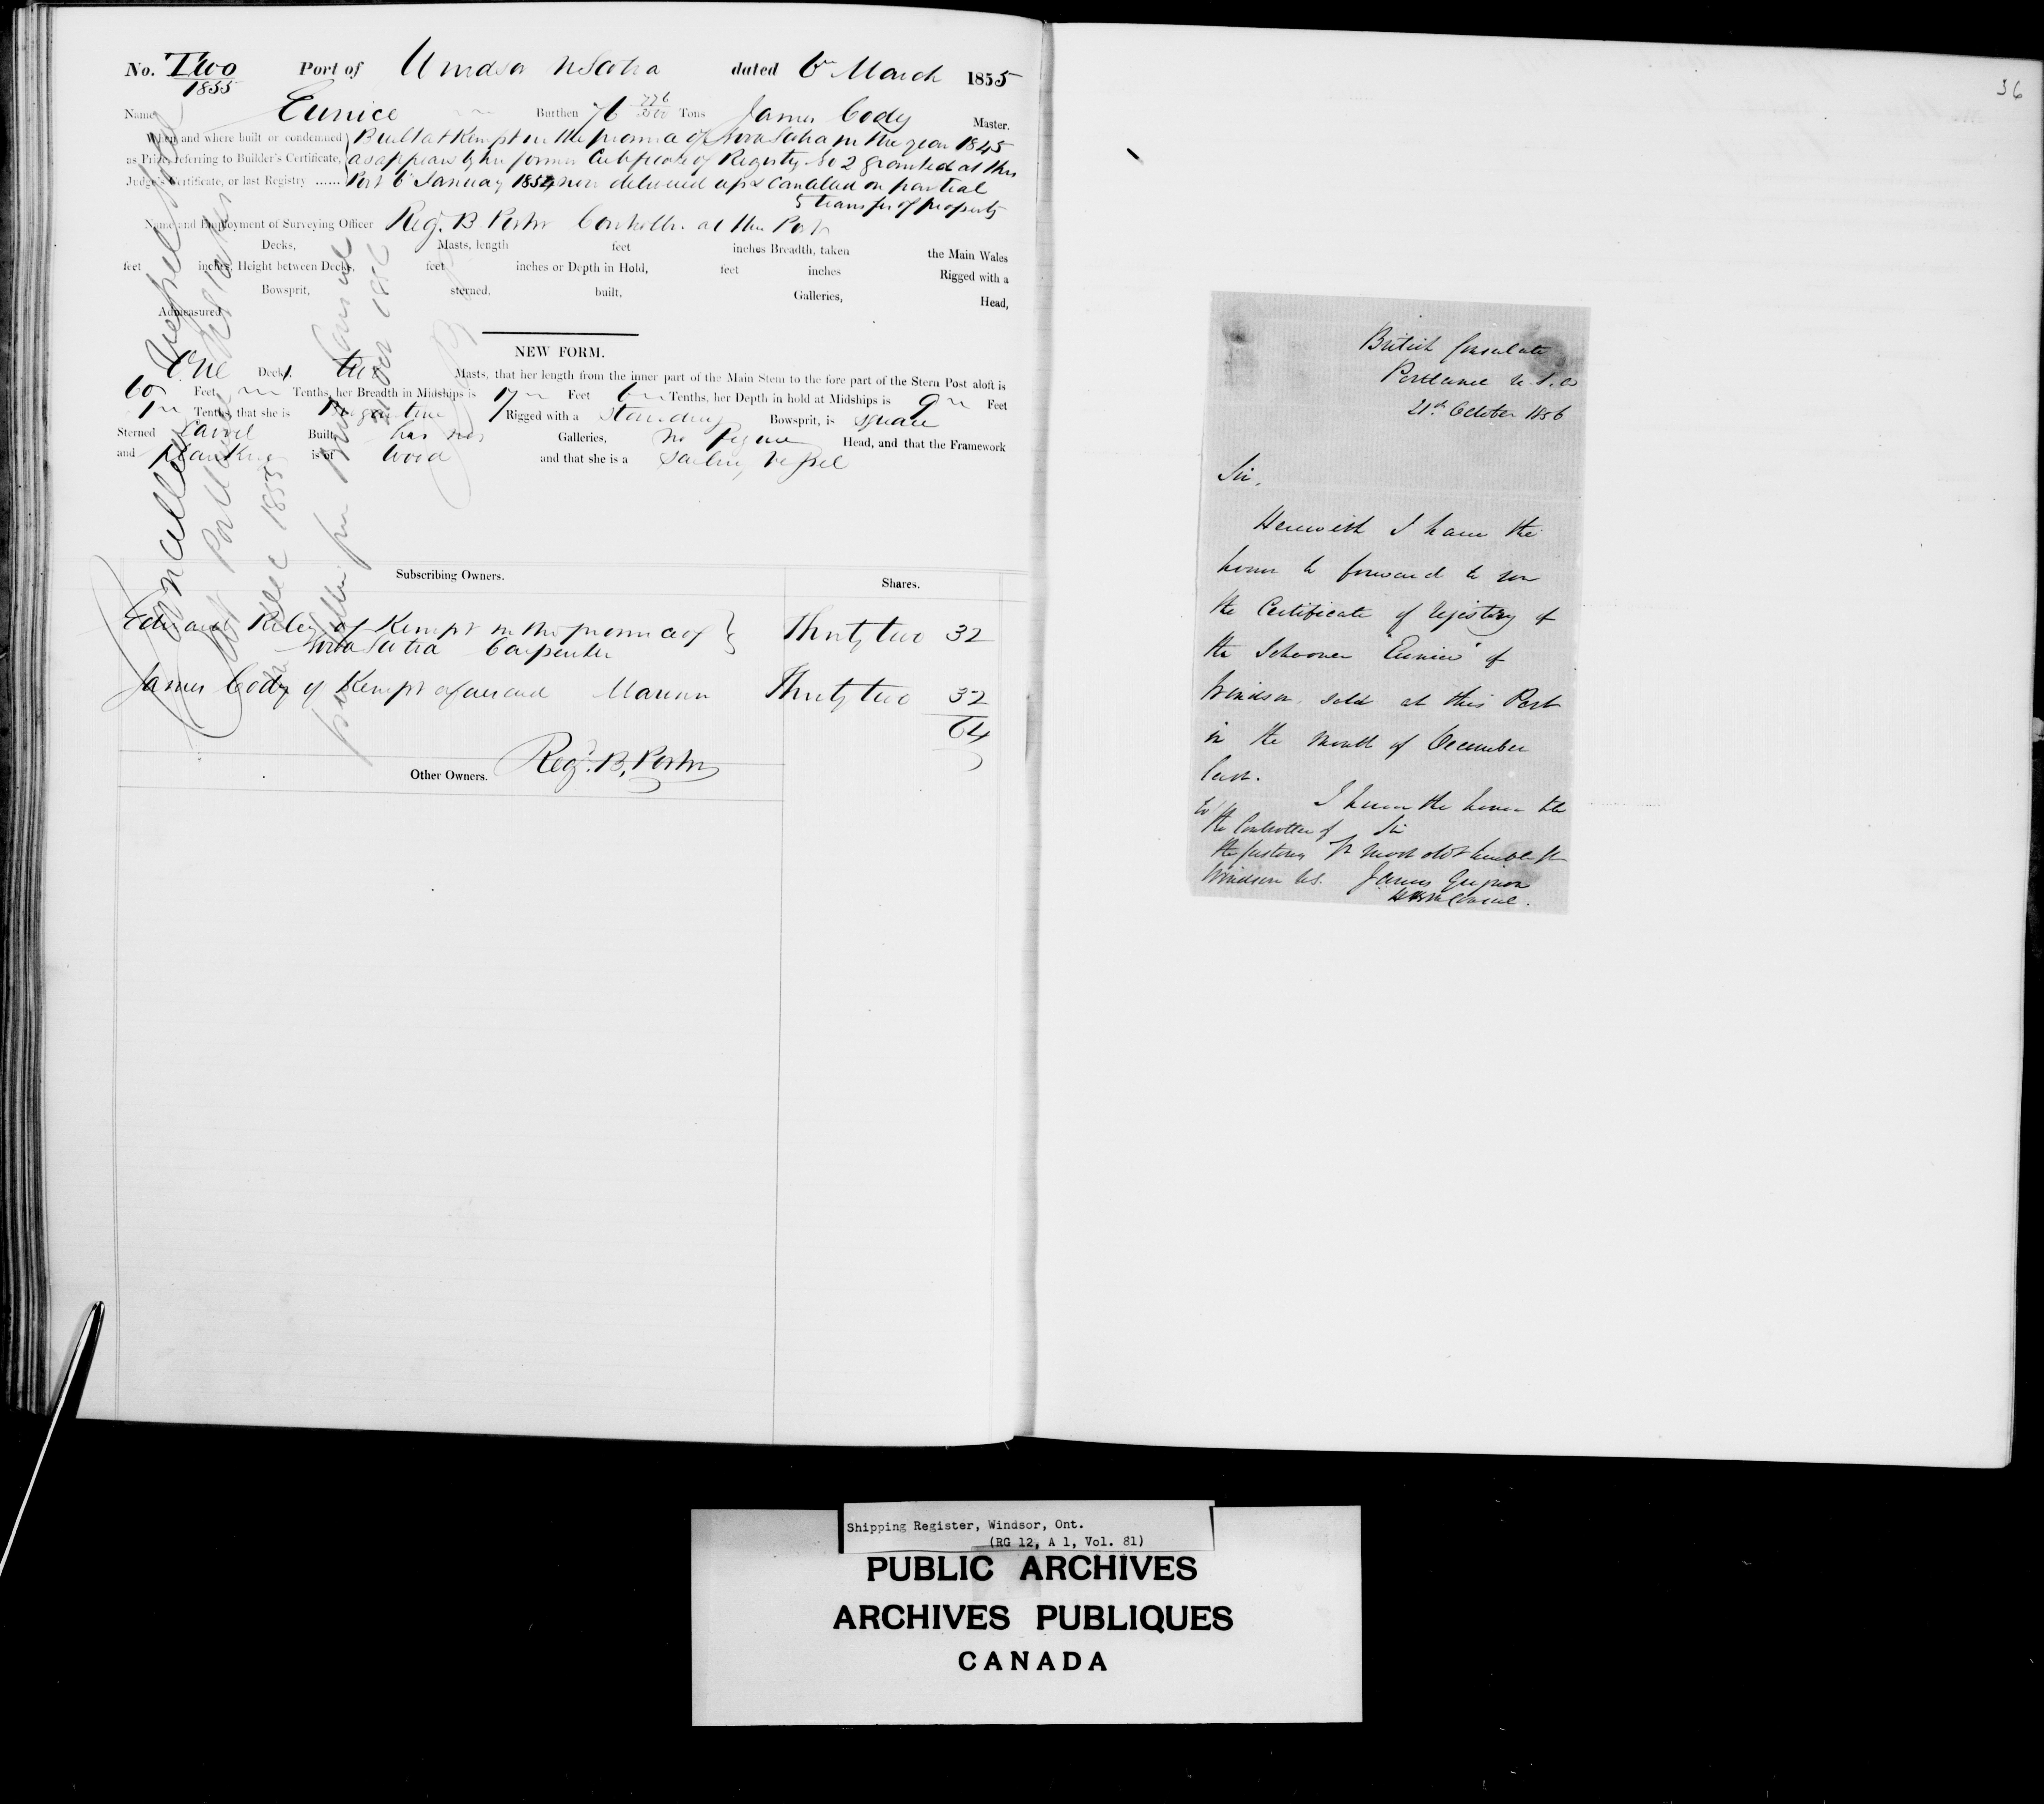 No. Two 1855 Port of Windsor N Scotia dated 6th March 1855
Name Eunice Burthen 76 Tons James Cody Master.
When and where built or condemned Built at Kempt in the province of Nova Scotia in the year 1845
as Prize, referring to Builder's Certificate, as appears by her former Certificate of Registry No 2 granted at this
Judge's Certificate, or last Registry ...... Port 6 January 1854 now delivered up & Cancelled on partial
transfer of property
Name and Employment of Surveying Officer Reg. B. Porter Controller at this Port
Decks, Masts, length feet inches Breadth, taken the Main Wales
feet inches, Height between Decks, feet inches or Depth in Hold, feet inches Rigged with a
Bowsprit, sterned, built, Galleries, Head,
Admeasured
NEW FORM.
One Deck, two Masts, that her length from the inner part of the Main Stem to the fore part of the Stern Post aloft is
60 Feet Tenths, her Breadth in Midships is 17 Feet 6 Tenths, her Depth in hold at Midships is 9 Feet
1 Tenths, that she is Brigantine Rigged with a standing Bowsprit, is square
Sterned Carvel Built, has no Galleries, no figure Head, and that the Framework
and planking is of Wood and that she is a Sailing Vessel
Cancelled Vessel sold
at Portland
in Dec 1855
per letter from British Consul
21 Oct 1856
Subscribing Owners. Shares.
Edward Riley of Kempt in the province of Thirty two 32
Nova Scotia Carpenter
James Cody of Kempt aforesaid Mariner Thirty two 32
64
Reg. B. Porter
Other Owners.
36
British Consulate
Portland U.S.A
21st October 1856
Sir,
Herewith I have the
honor to forward to you
the Certificate of Registry of
the Schooner "Eunice" of
Windsor, sold at this Port
in the month of December
last.
I have the honor to be
To the Controller of Sir
the Customs Yr most obt humble St
Windsor N.S. James Grignon
HBM Consul.
Shipping Register, Windsor, Ont.
(RG 12, A 1, Vol. 81)
PUBLIC ARCHIVES
ARCHIVES PUBLIQUES
CANADA